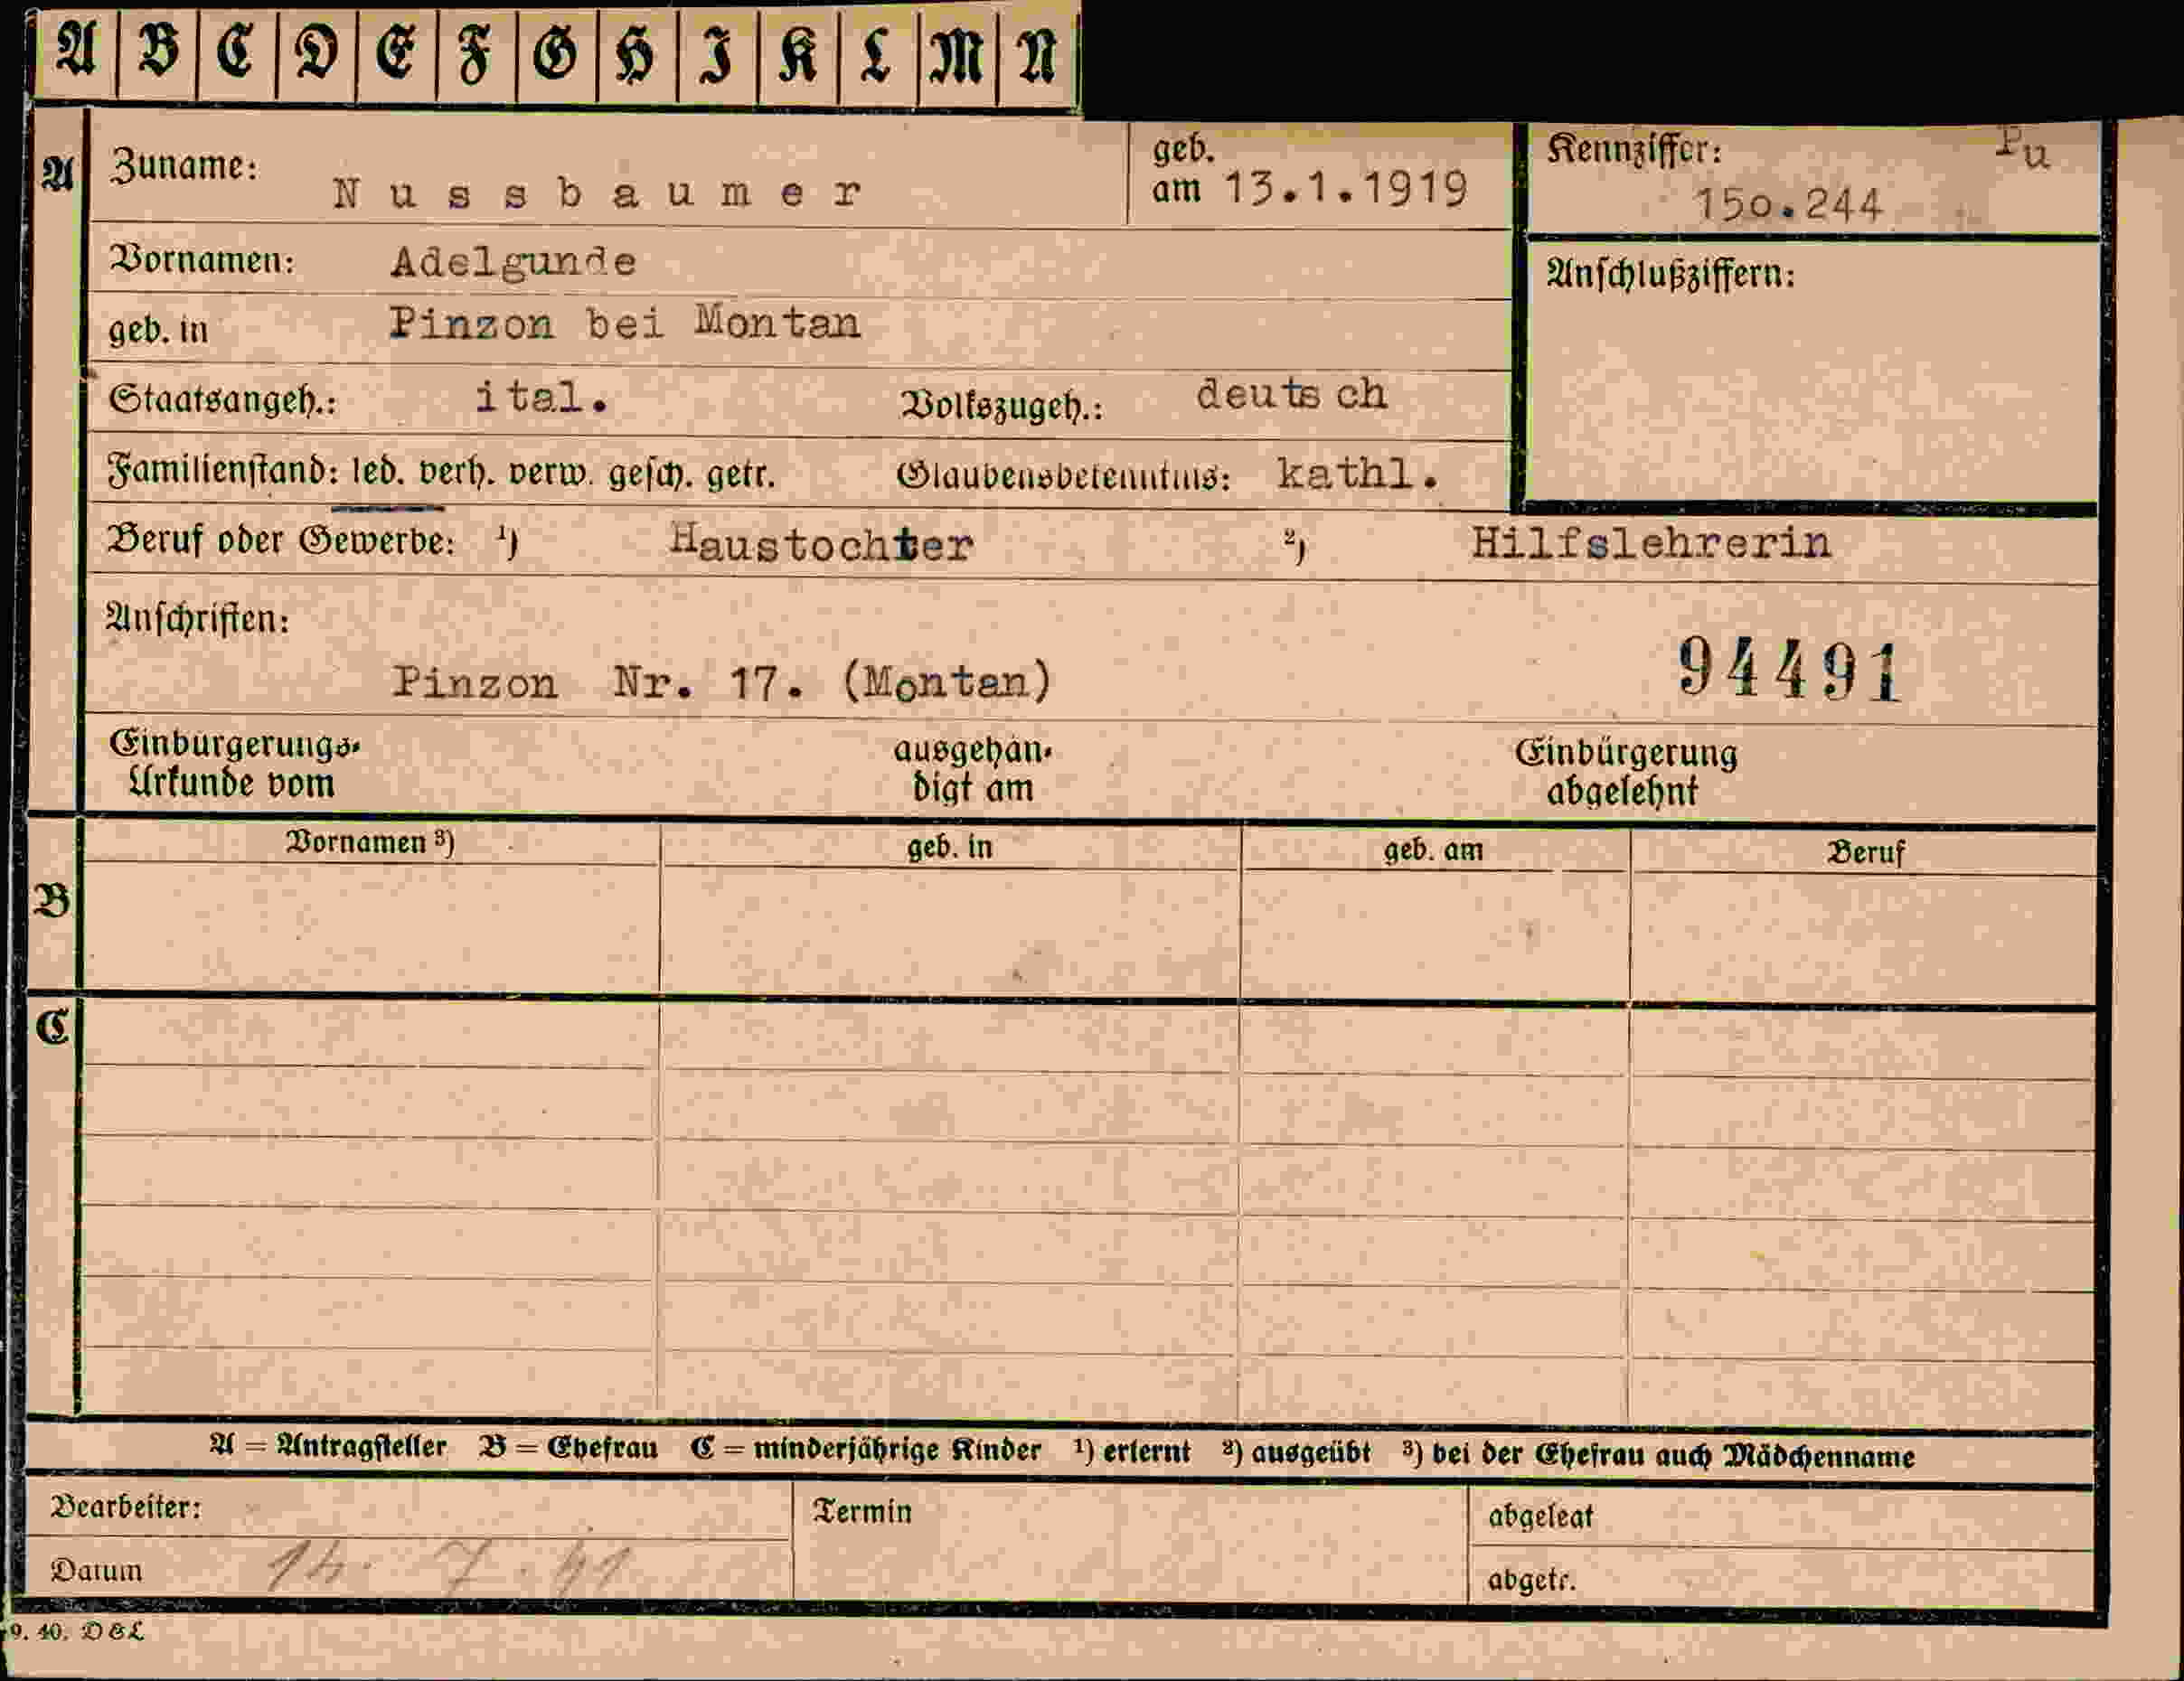 A B C D E F G H I K L M N
A Zuname: Nussbaumer geb. am 13.1.1919 Kennziffer: 15o.244 Pu
Vornamen: Adelgunde Anschlußziffern:
geb. in Pinzon bei Montan
Staatsangeh.: ital. Volkszugeh.: deutsch
Familienstand: led. verh. verw. gesch. getr. Glaubensbekenntnis: kathl.
Beruf oder Gewerbe: ¹) Haustochter ²) Hilfslehrerin
Anschriften:
Pinzon Nr. 17. (Montan) 94491
Einbürgerungs- ausgehän- Einbürgerung
Urkunde vom digt am abgelehnt
Vornamen ³) geb. in geb. am Beruf
B
C
A = Antragsteller B = Ehefrau C = minderjährige Kinder ¹) erlernt ²) ausgeübt ³) bei der Ehefrau auch Mädchenname
Bearbeiter: Termin abgelegt
Datum 14. 7. 41 abgetr.
9. 40. D&L